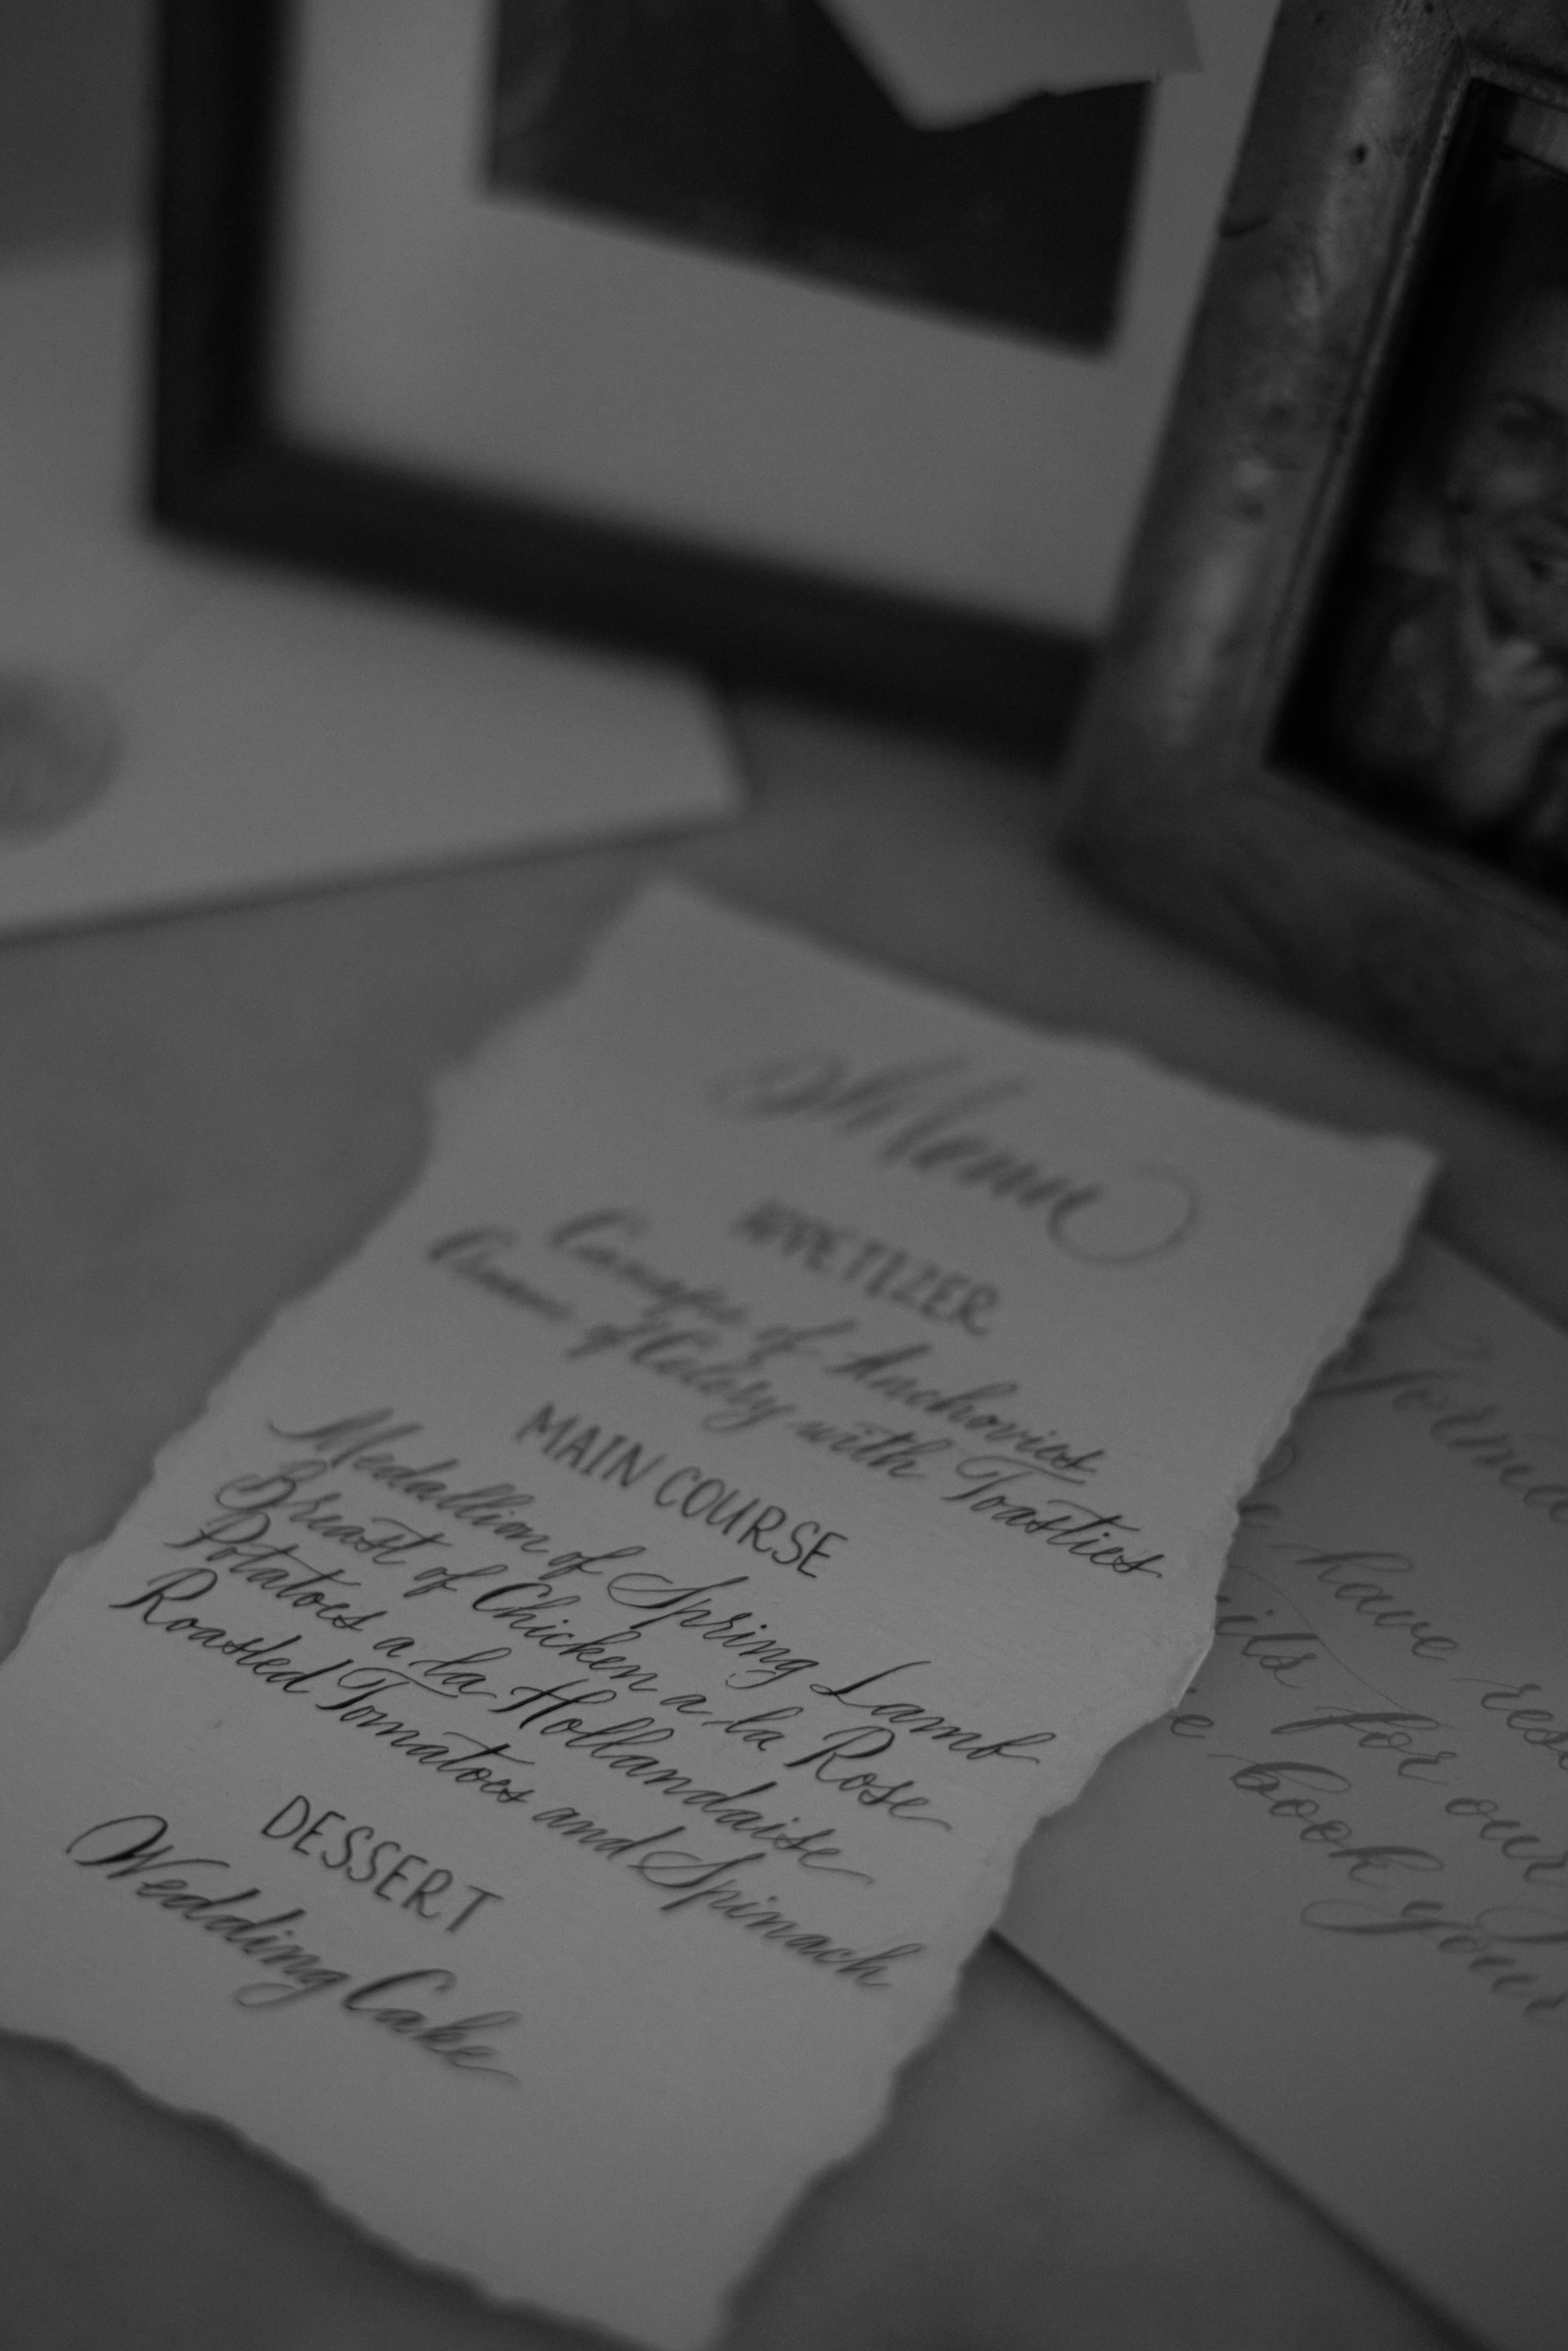 Menu
APPETIZER
Canape of Anchovies
of Celery with Toasties
MAIN COURSE
Medallion of Spring Lamb
Breast of Chicken a la Rose
Potatoes a la Hollandaise
Roasted Tomatoes and Spinach
DESSERT
Wedding Cake
have
for our
book your